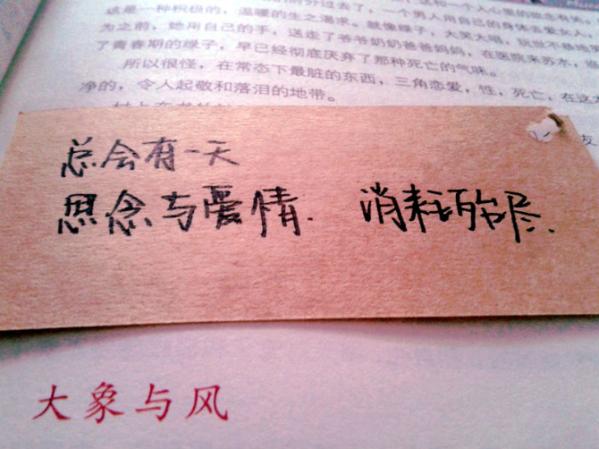 这是一种积极的，温暖的生之渴求。就像绿子，大笑大唱，玩世不恭
为之前，她用自己的手，送走了爷爷奶奶爸爸妈妈，在医院来苏水，
了青春期的绿子，早已经彻底厌弃了那种死亡的气味。
所以很怪，在常态下最脏的东西，三角恋爱，性，死亡，在这
净的，令人起敬和落泪的地带。
总会有一天
思念与爱情. 消耗殆尽.
大象与风